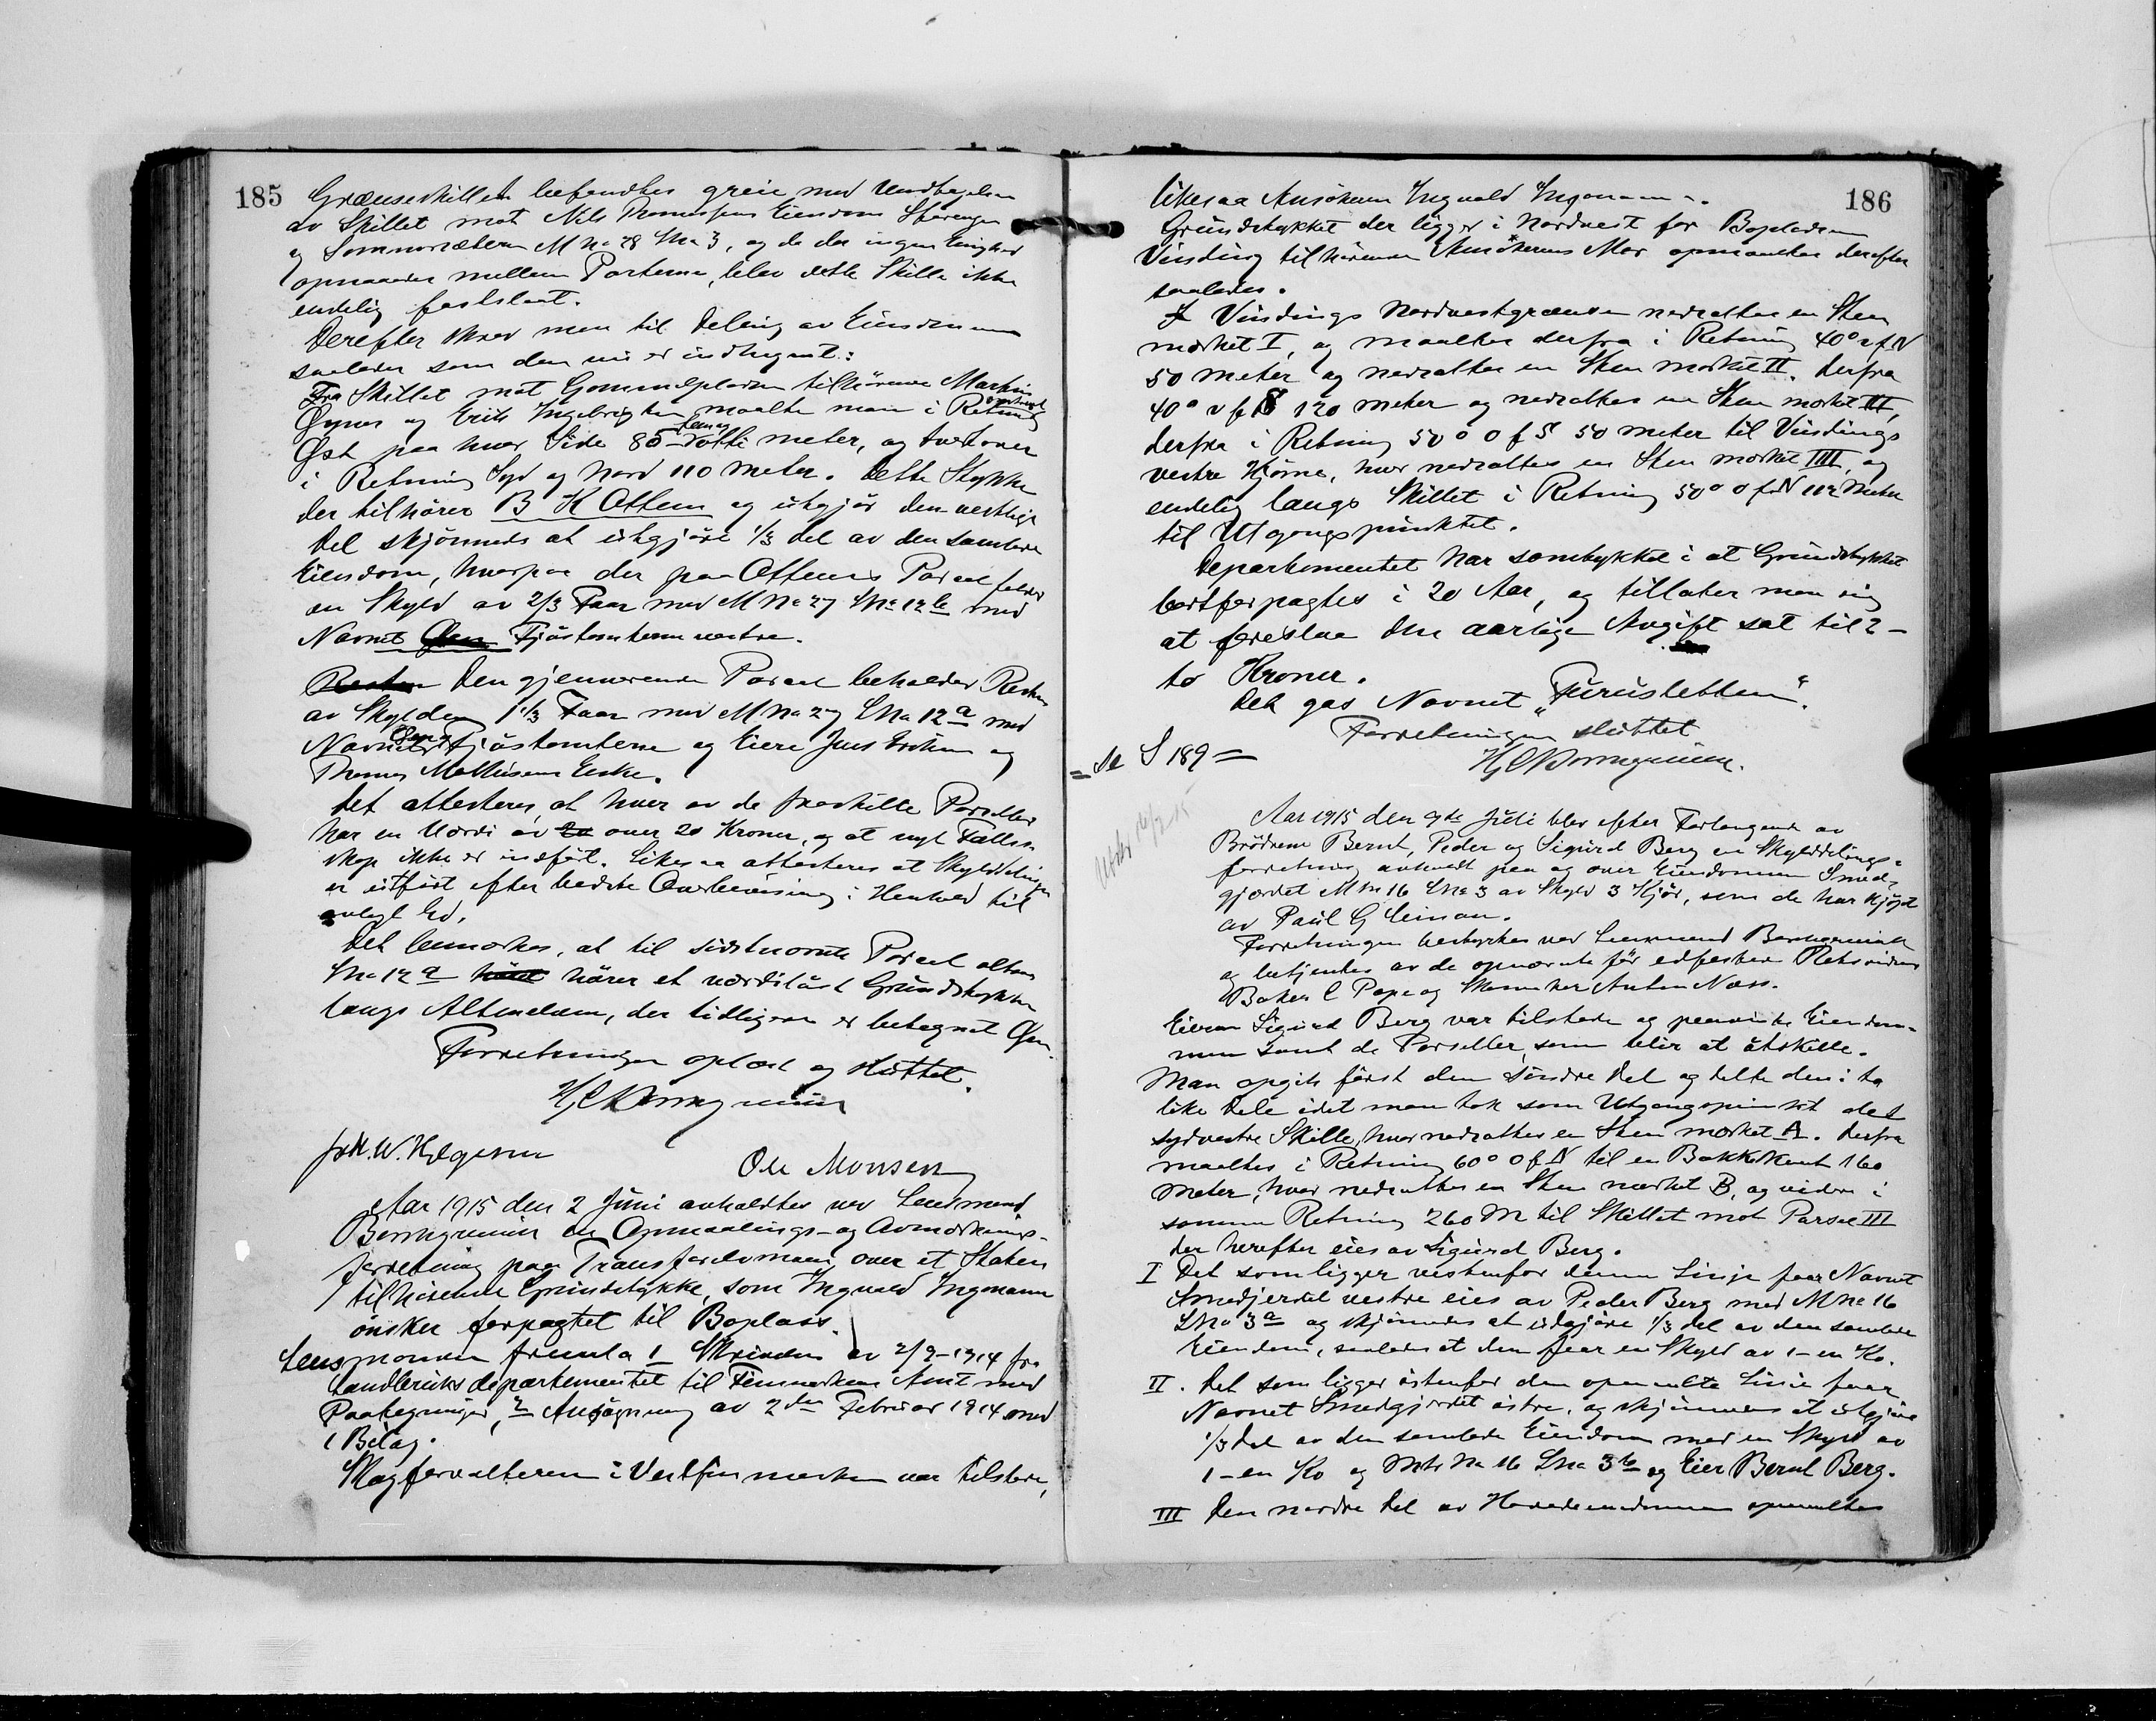 185
Grænseskillet befandtes greie med Undtagelse
av Skillet mot Nils Thomassens Eiendom
og M No 28 LNo 3, og da der ingen Enighed
opnaaedes mellem Parterne, blev dette Skille ikke
endelig fastslaat.
Derefter skred man til Deling av Eiendommen
saaledes som den nu er indhegnet:
Fra Skillet mot Gammelpladsen tilhörende Martin
og Erik Ingebrigtsen maalte man i Retning
Øst paa hver Side 85 - fem og otti meter, og
i Retning Syd og Nord 110 meter. Dette Stykke
der tilhörer B H Ottem og utgjör den vestlige
Del skjönnedes at utgjöre 1/3 del av den samlede
Eiendom, hvorpaa der paa Ottems Parcel falder
en Skyld av 2/3 Faar med M No 27 LNo 12 b med
Navnet Fjöstomterne vestre.
Den gjenværende Parcel beholder Resten
av Skylden 1 1/3 Faar med M No 27 LNo 12 a med
Navnet Fjöstomterne og Eiere Jens og
Thomas Mathisens Enke.
Det attesteres, at hver av de fraskilte Parseller
har en Værdi av over 20 Kroner, og at nyt Fælles-
skap ikke er indfört. Likesaa attesteres at Skylddelingen
er utfört efter bedste Overbevisning i Henhold til
avlagt Ed.
Det bemerkes, at til sidstnævnte Parcel altsaa
LNo 12 a hörer et værdilöst Grundstykke
langs Altenelven, der tidligere er betegnet Øen.
Forretningen oplæst og sluttet.
Joh. W. Helgesen
Ole Monsen
Aar 1915 den 2 Juni avholdtes ved Lensmand
en Opmaalings- og Avmerknings-
forretning paa over et Staten
tilhörende Grundstykke, som Ingvald Ingomann
önsker forpagtet til Boplass.
Lensmanden fremla 1 Skrivelse av 2/9-1914 fra
Landbruksdepartementet til Finmarkens Amt med
Paategninger, 2 Ansögning av 2den Februar 1914 med
1 Bilag.
Skogforvalteren i Vestfinmarken var tilstede,
186
likesaa Ansökeren Ingvald Ingomann.
Grundstykket der ligger i Nordvest for Bopladsen
Vinding tilhörende Ansökerens Mor opmaaltes derefter
saaledes.
I Vindings Nordvestgrænse nedsattes en Sten
merket I, og maaltes derfra i Retning 40° v f N
50 meter og nedsattes en Sten merket II. Derfra
40° v f S 120 meter og nedsattes en Sten merket III,
derfra i Retning 50° o f S 50 meter til Vindings
vestre Hjörne, hvor nedsattes en Sten merket IIII, og
endelig langs Skillet i Retning 50° o f N 112 Meter
til Utgangspunktet.
Departementet har samtykket i at Grundstykket
bortforpagtes i 20 Aar, og tillater man sig
at foreslaa den aarlige Avgift sat til 2-
to Kroner.
Det gas Navnet „Furusletten“.
Forretningen sluttet
= Se S 189 =
Aar 1915 den 9de Juli blev efter Forlangende av
Brödrene Bernt, Peder og Sigurd Berg en Skylddelings-
forretning avholdt paa og over Eiendommen Smed-
gjærdet M No 16 LNo 3 av Skyld 3 Kjör, som de har kjöpt
av Paul G Simon.
Forretningen bestyrtes ved Lensmand
og betjentes av de opnævnte för edfæstede Retsvidner
Baker C Pape og Anton Næss.
Eieren Sigurd Berg var tilstede og paaviste Eiendom-
men samt de Parseller, som blir at utskille.
Man opgik först den söndre Del og delte den i to
like Dele idet man tok som Utgangspunkt det
sydvestre Skille, hvor nedsattes en Sten merket A. Derfra
maaltes i Retning 60° o f N til en Bakkekant 160
Meter, hvor nedsattes en Sten merket B, og videre i
samme Retning 260 M til Skillet mot Parsel III
der herefter eies av Sigurd Berg.
I Det som ligger vestenfor denne Linje faar Navnet
Smedjerdet vestre eies av Peder Berg med M No 16
LNo 3 a og skjönnedes at utgjöre 1/3 del av den samlede
Eiendom, saaledes at den faar en Skyld av 1 - en Ko.
II. Det som ligger östenfor den opmaalte Linie faar
Navnet Smedgjerdet östre, og skjönnes at utgjöre
1/3 del av den samlede Eiendom med en Skyld av
1 - en Ko og Mtr No 16 LNo 3 b og Eier Bernt Berg.
III Den nordre Del av Hovedeiendommen opmaaltes